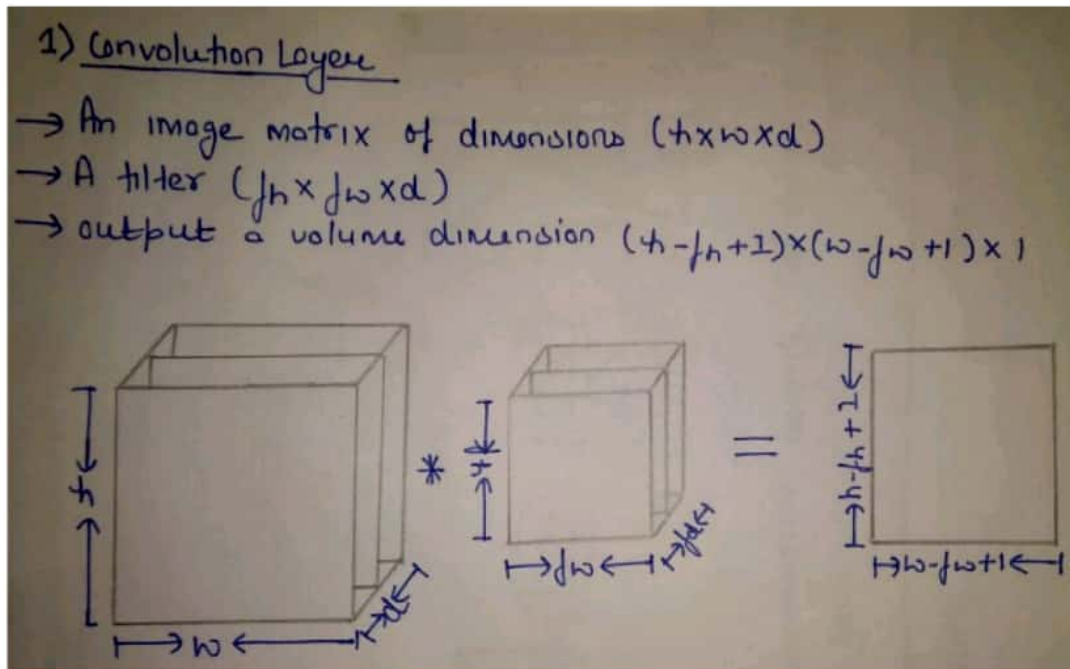 1) Convolution Layer
→ An image matrix of dimensions (h×w×d)
→ A filter (fh × fw × d)
→ output a volume dimension (h-fh+1)×(w-fw+1)×1
h
w
d
*
fh
fw
fd
=
h-fh+1
w-fw+1